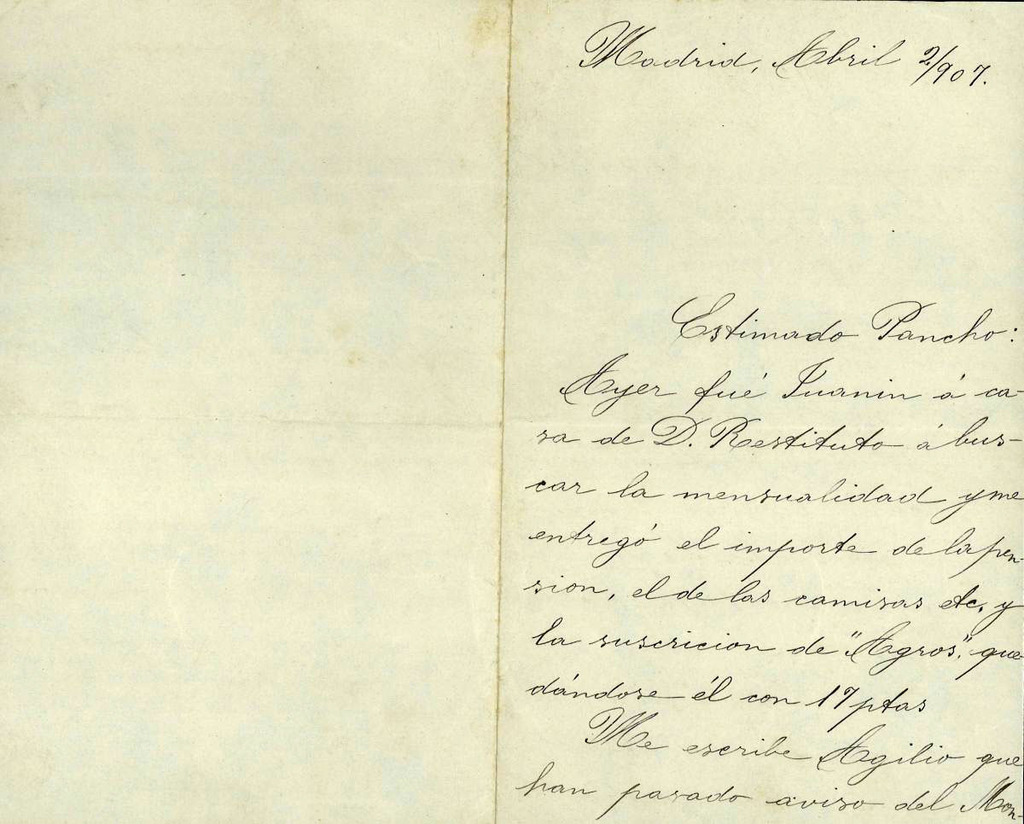 Madrid, Abril 2/907.
Estimado Pancho:
Ayer fué Juanin á ca-
sa de D. Restituto á bus-
car la mensualidad y me
entregó el importe de la pen-
sion, el de las camisas etc. y
la suscricion de "Agros", que-
dándose él con 17 ptas
Me escribe Agilio que
han pasado aviso del Mon-